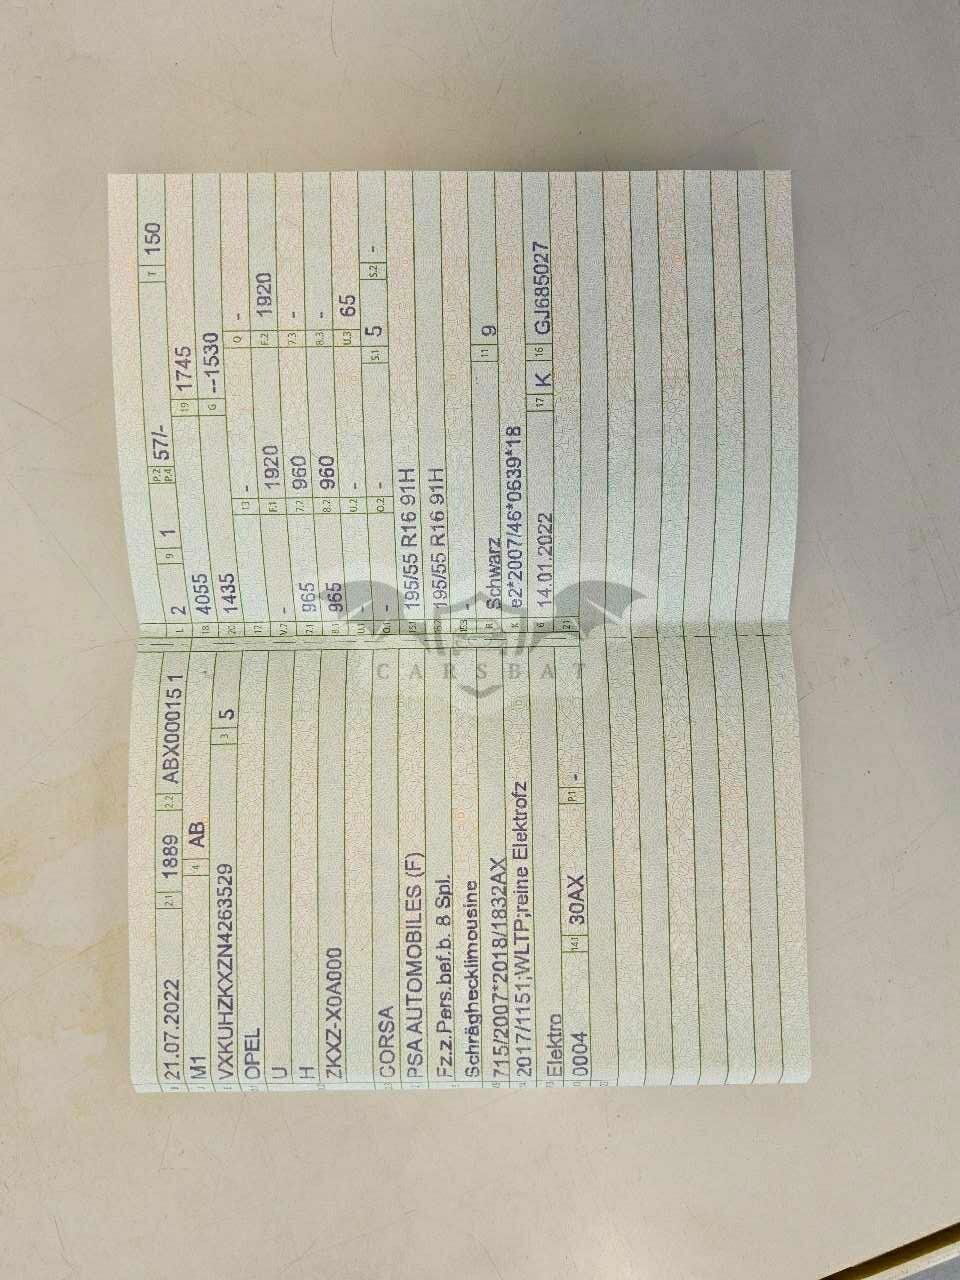 21.07.2022 2.1 1889 2.2 ABX000151
M1 4 AB
VXKUHZKXZN4263529 3 5
OPEL
U
H
ZKXZ-X0A000
CORSA
PSA AUTOMOBILES (F)
Fz.z.Pers.bef.b. 8 Spl.
Schräghecklimousine
715/2007*2018/1832AX
2017/1151;WLTP;reine Elektrofz
Elektro
0004 14.1 30AX P.1 -
L 2 9 1 P.2 P.4 57/- T 150
18 4055 19 1745
20 1435 G --1530
12 13 - Q -
V.7 - F.1 1920 F.2 1920
7.1 965 7.2 960 7.3 -
8.1 965 8.2 960 8.3 -
U.1 - U.2 - U.3 65
O.1 - O.2 - S.1 5 S.2 -
15.1 195/55 R16 91H
15.2 195/55 R16 91H
15.3 -
R Schwarz 11 9
K e2*2007/46*0639*18
6 14.01.2022 17 K 16 GJ685027
21
CARSBAT